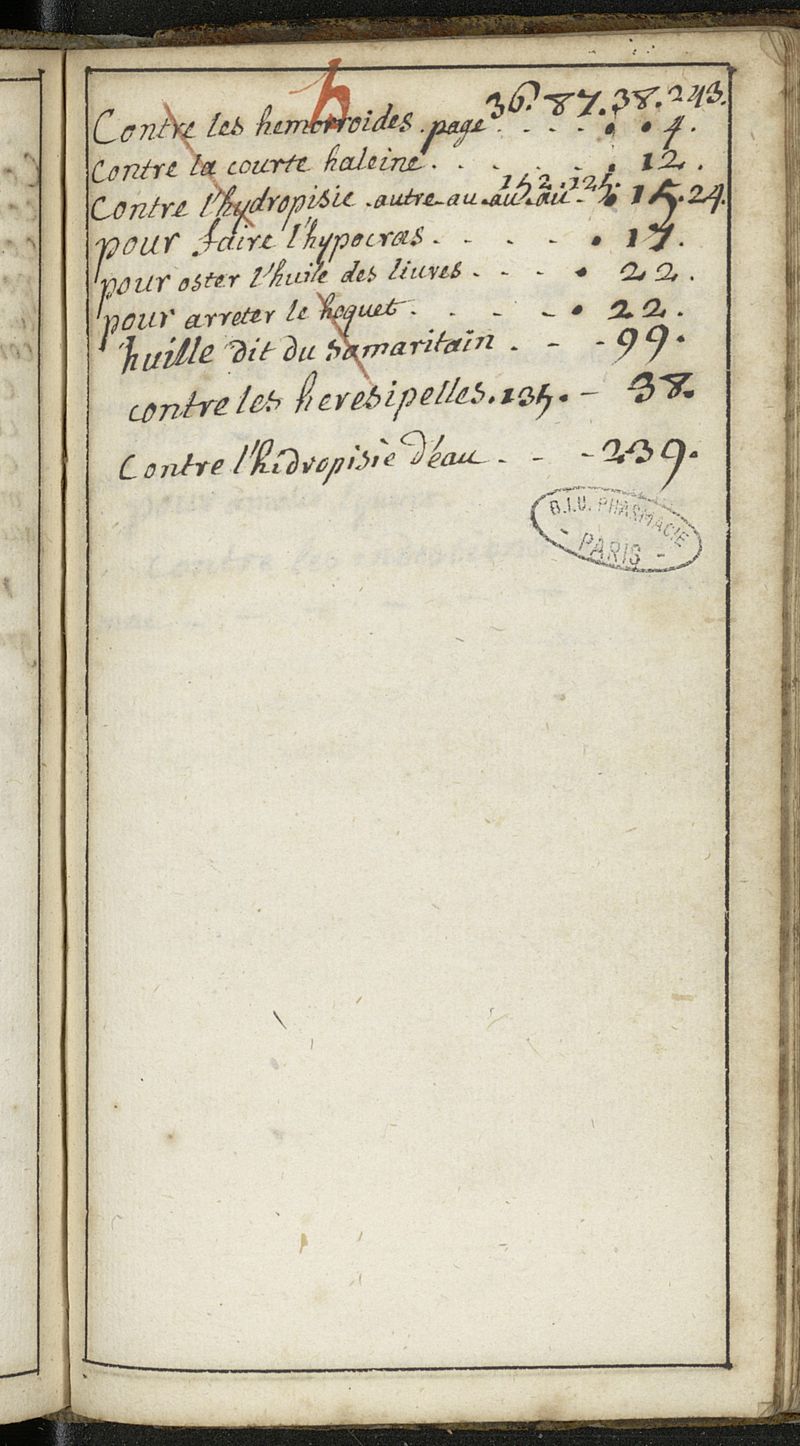 h
36. 87. 38. 243.
Contre les hemorroides. page . . . . . 4.
Contre la courte haleine . . . . . 12.
152. 125.
Contre l'hydropisie . autre . au . au . au . 15. 24.
pour faire l'hypocras . - - - . 17.
pour oster l'huile des liures . - - . 22.
pour arreter le hoquet . . - - . 22.
huille dit du samaritain . - - 99.
contre les heresipelles. 135. - 38.
Contre l'hidropisie d'eau - - - 239.
B.I.U. PHARMACIE
- PARIS -